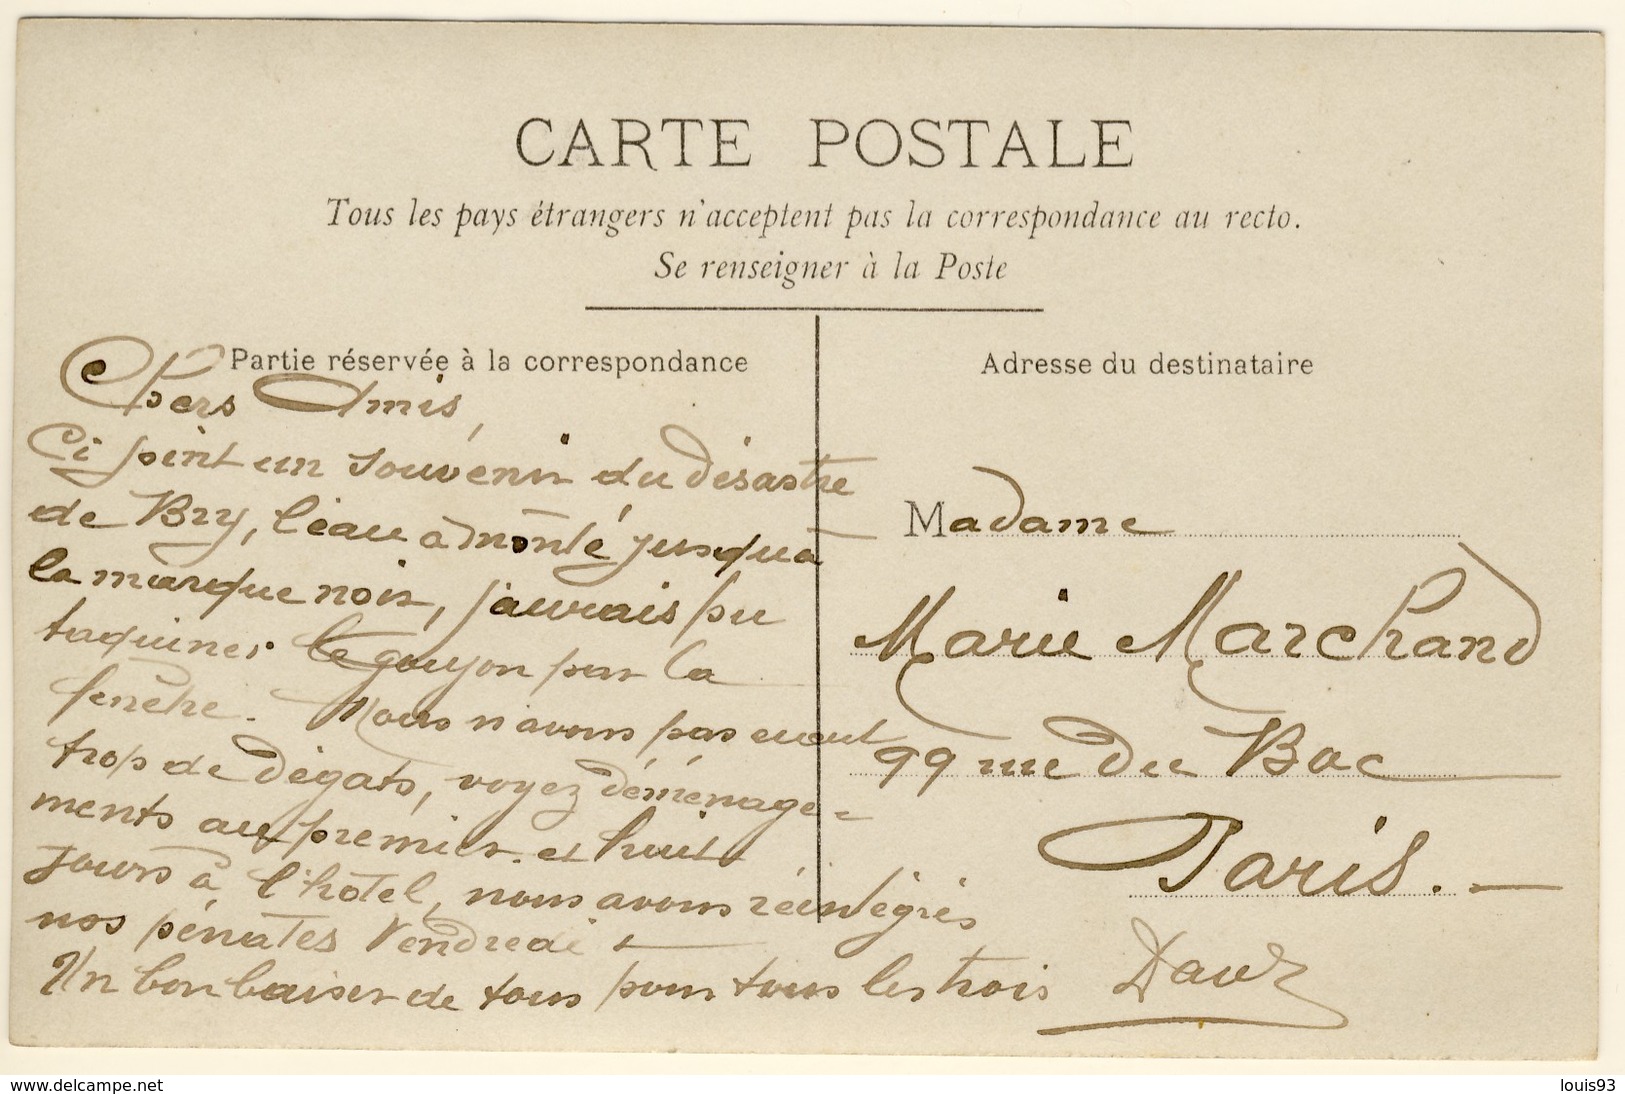 CARTE POSTALE
Tous les pays étrangers n'acceptent pas la correspondance au recto.
Se renseigner à la Poste
Partie réservée à la correspondance
Chers Amis,
Ci joint un souvenir du désastre
de Bry, l'eau a monté jusqu'à
la marque noir, j'aurais pu
taquiner le goujon par la
fenêtre. Nous n'avons pas eu
trop de dégats, voyez déménage=
ments au premier et huit
jours à l'hôtel, nous avons réintégrés
nos pénates Vendredi
Un bon baiser de tous pour tous les trois
Adresse du destinataire
Madame
Marie Marchand
99 rue du Bac
Paris.
www.delcampe.net
louis93